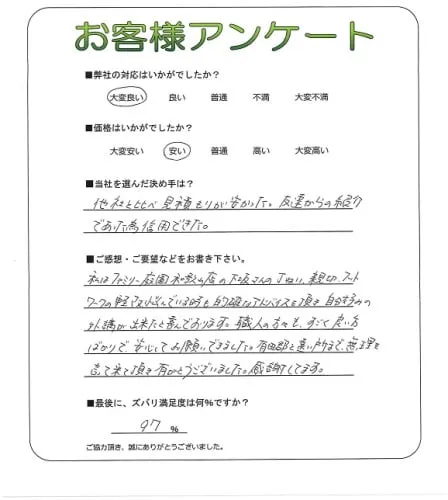 お客様アンケート
■弊社の対応はいかがでしたか？
大変良い 良い 普通 不満 大変不満
■価格はいかがでしたか？
大変安い 安い 普通 高い 大変高い
■当社を選んだ決め手は？
他社と比べ見積もりが安かった。友達からの紹介
であった為信用できた。
■ご感想・ご要望などをお書き下さい。
私はファミリー庭園和歌山店の下阪さんの丁ねい、親切、フット
ワークの軽さ 的確なアドバイスを頂き自分好みの
外構が出来たと喜んでおります。職人の方々も、すごく良い方
ばかりで、安心してお願いできました。有田郡と遠い所まで、無理を
言って来て頂き有がとうございました。感謝してます。
■最後に、ズバリ満足度は何％ですか？
97 %
ご協力頂き、誠にありがとうございました。